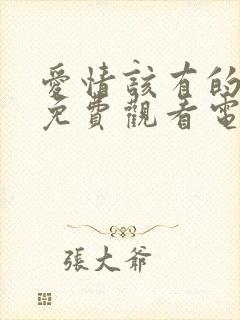 愛情該有的
免費觀看電
張大爺